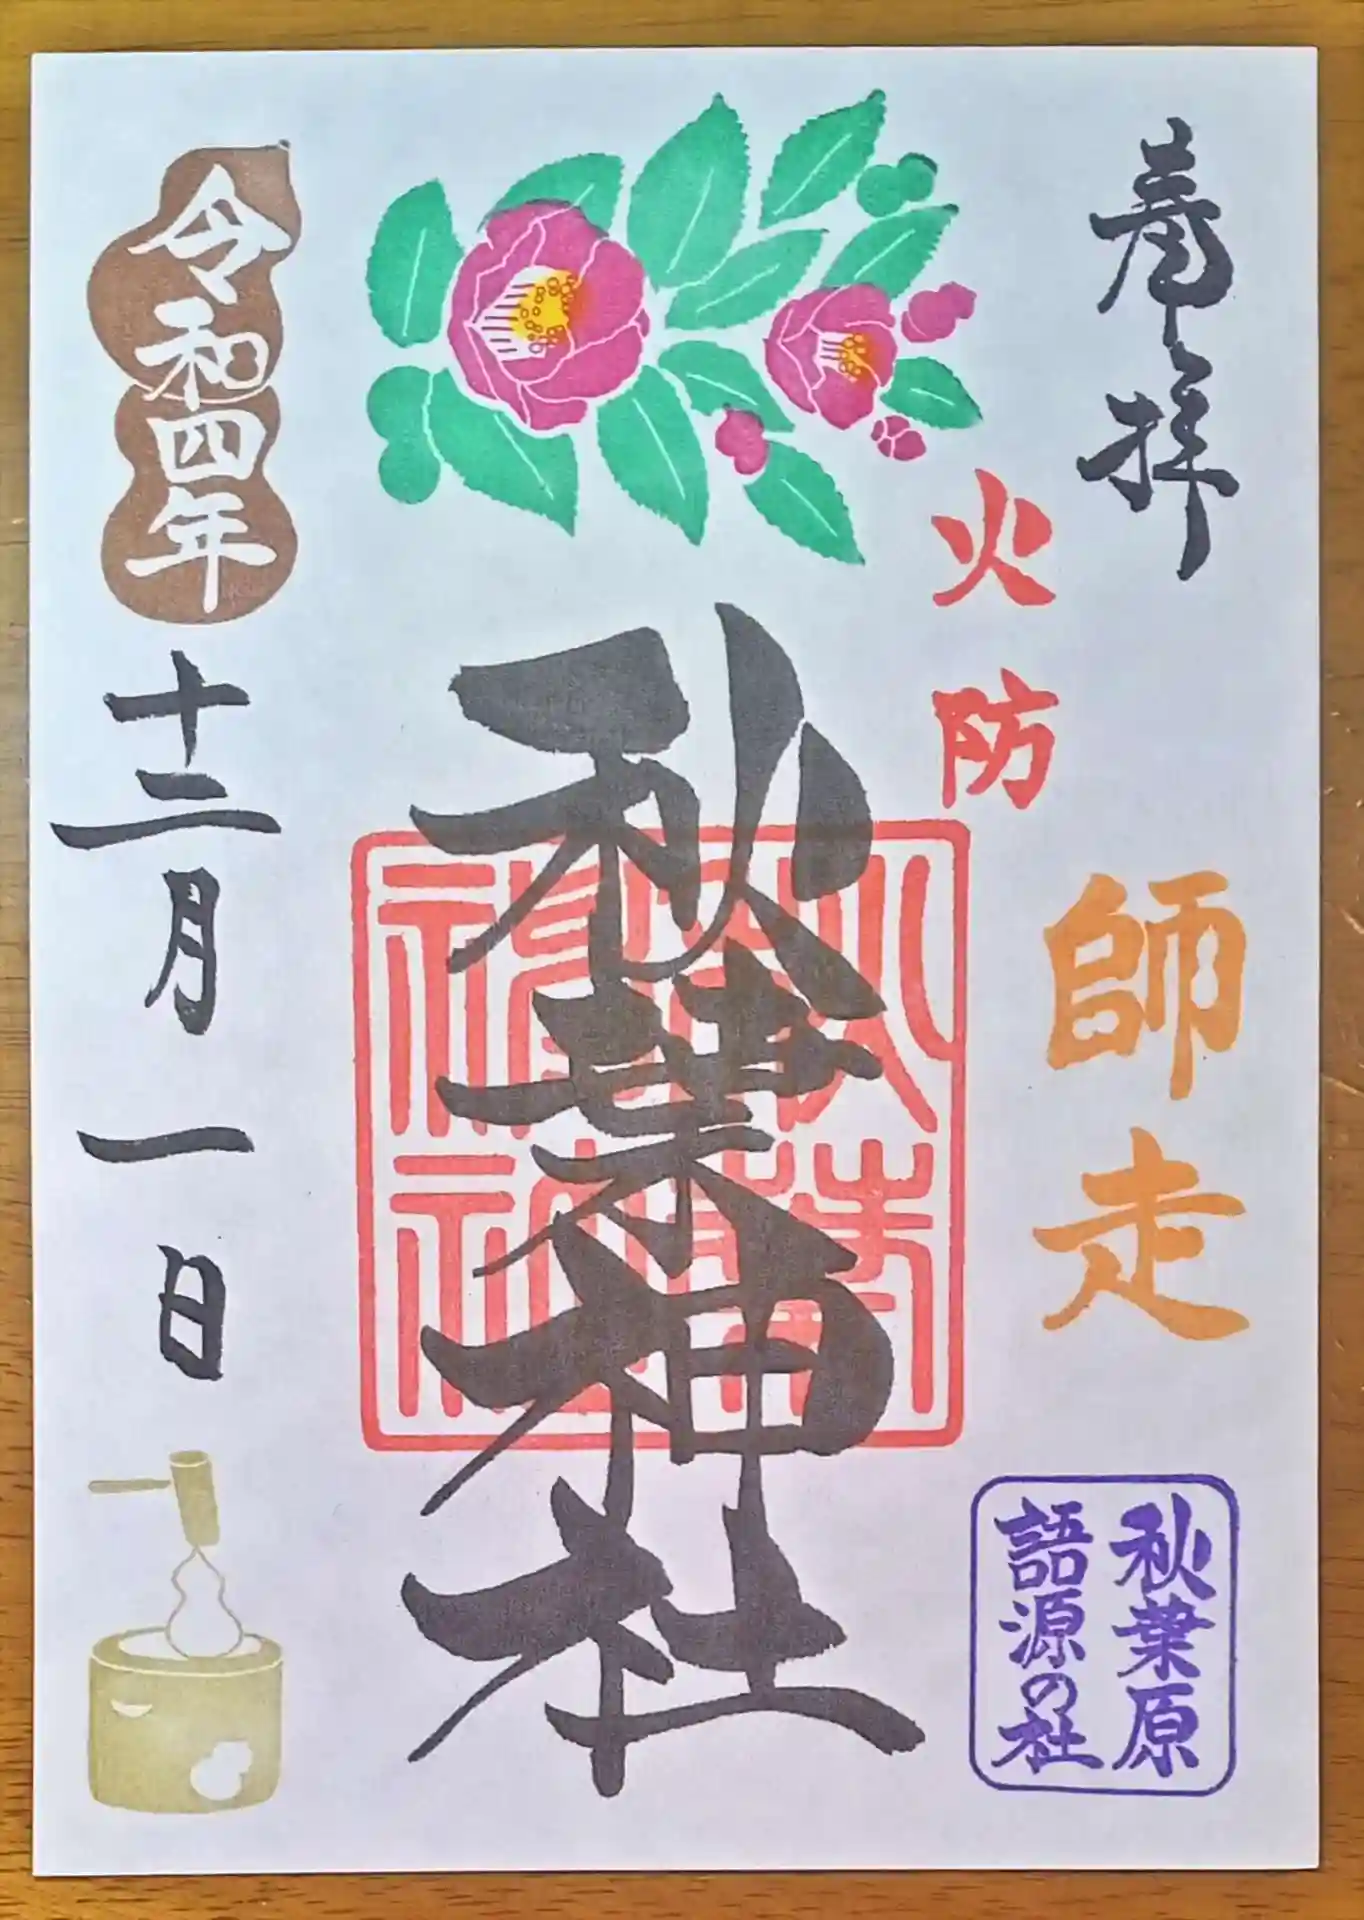 奉拝
火防
師走
秋葉原
語源の社
秋葉神社
秋葉
神社
令和四年
十二月一日